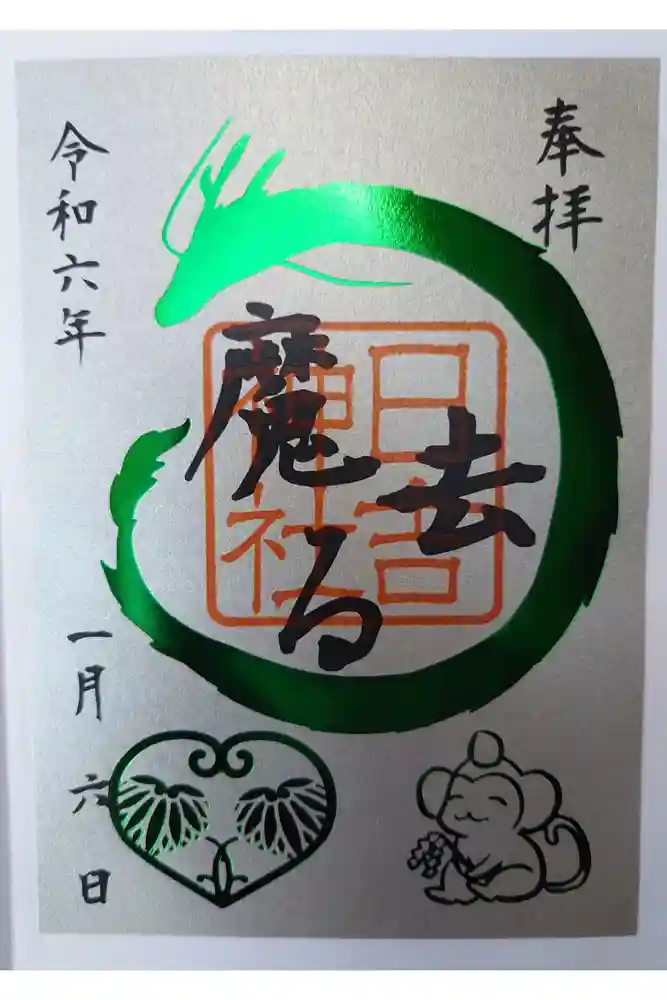 奉拝
日吉
神社
去
魔る
令和六年
一月六日